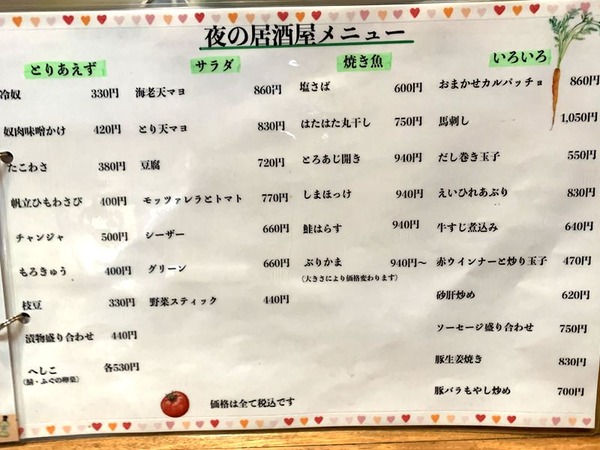 夜の居酒屋メニュー
とりあえず
冷奴 330円
奴肉味噌かけ 420円
たこわさ 380円
帆立ひもわさび 400円
チャンジャ 500円
もろきゅう 400円
枝豆 330円
漬物盛り合わせ 440円
へしこ 各530円
(鯖・ふぐの卵巣)
サラダ
海老天マヨ 860円
とり天マヨ 830円
豆腐 720円
モッツァレラとトマト 770円
シーザー 660円
グリーン 660円
野菜スティック 440円
焼き魚
塩さば 600円
はたはた丸干し 750円
とろあじ開き 940円
しまほっけ 940円
鮭はらす 940円
ぶりかま 940円～
(大きさにより価格変わります)
いろいろ
おまかせカルパッチョ 860円
馬刺し 1,050円
だし巻き玉子 550円
えいひれあぶり 830円
牛すじ煮込み 640円
赤ウインナーと炒り玉子 470円
砂肝炒め 620円
ソーセージ盛り合わせ 750円
豚生姜焼き 830円
豚バラもやし炒め 700円
価格は全て税込です